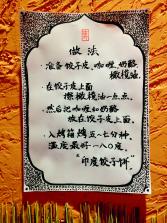 做法
·准备饺子皮、咖喱、奶酪
橄榄油
·在饺子皮上面
擦橄榄油一点点。
·然后把咖喱和奶酪
放在饺子皮上面。
·入烤箱烤五-七分钟，
温度最好一八〇度。
"印度饺子饼"